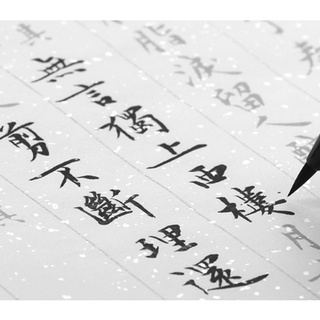 脂淚留人
無言獨上西樓月
剪不斷理還